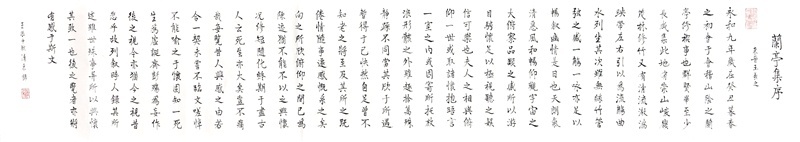 蘭亭集序
永和九年歲在癸丑暮春
之初會于會稽山陰之蘭
亭修禊事也群賢畢至少
長咸集此地有崇山峻嶺
茂林修竹又有清流激湍
映帶左右引以為流觴曲
水列坐其次雖無絲竹管
弦之盛一觴一詠亦足以
暢敘幽情是日也天朗氣
清惠風和暢仰觀宇宙之
大俯察品類之盛所以游
目騁懷足以極視聽之娛
信可樂也夫人之相與俯
仰一世或取諸懷抱晤言
一室之內或因寄所托放
浪形骸之外雖趣捨萬殊
靜躁不同當其欣于所遇
暫得于己快然自足曾不
知老之將至及其所之既
倦情隨事遷感慨係之矣
向之所欣俯仰之間已為
陳跡猶不能不以之興懷
況修短隨化終期于盡古
人云死生亦大矣豈不痛
哉每覽昔人興感之由若
合一契未嘗不臨文嗟悼
不能喻之于懷固知一死
生為虛誕齊彭殤為妄作
後之視今亦猶今之視昔
悲乎故列敘時人錄其所
述雖世殊事異所以興懷
其致一也後之覽者亦將
有感于斯文